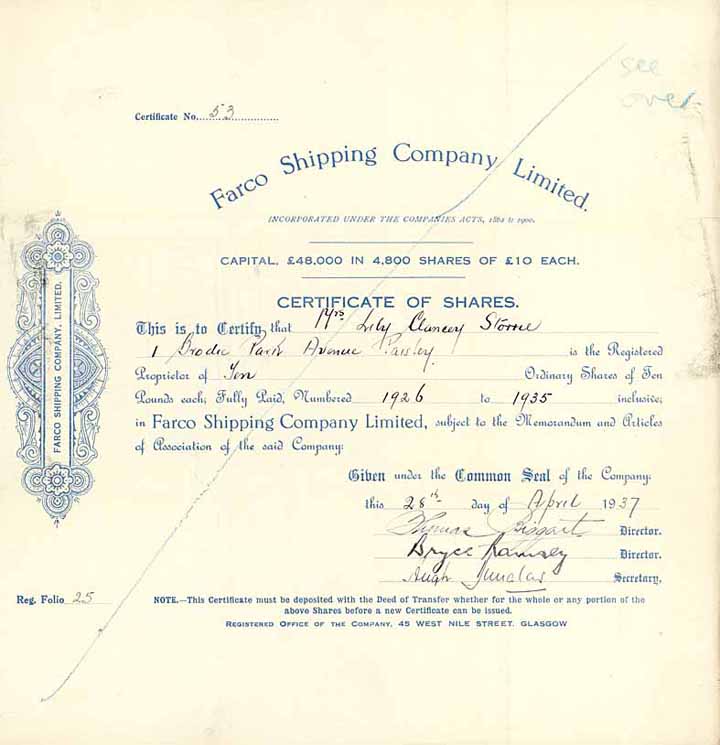 see
over
Certificate No. 53
Farco Shipping Company Limited.
INCORPORATED UNDER THE COMPANIES ACTS, 1862 to 1900.
CAPITAL, £48,000 IN 4,800 SHARES OF £10 EACH.
CERTIFICATE OF SHARES.
This is to Certify that Mrs Lily Clancey Storrie
1 Brodie Park Avenue Paisley is the Registered
Proprietor of Ten Ordinary Shares of Ten
Pounds each, Fully Paid, Numbered 1926 to 1935 inclusive,
in Farco Shipping Company Limited, subject to the Memorandum and Articles
of Association of the said Company.
Given under the Common Seal of the Company,
this 28th day of April 1937
Thomas Biggart Director.
Bryce Ramsey Director.
Hugh Dundas Secretary.
Reg. Folio 25
NOTE.—This Certificate must be deposited with the Deed of Transfer whether for the whole or any portion of the
above Shares before a new Certificate can be issued.
REGISTERED OFFICE OF THE COMPANY, 45 WEST NILE STREET, GLASGOW
FARCO SHIPPING COMPANY, LIMITED.